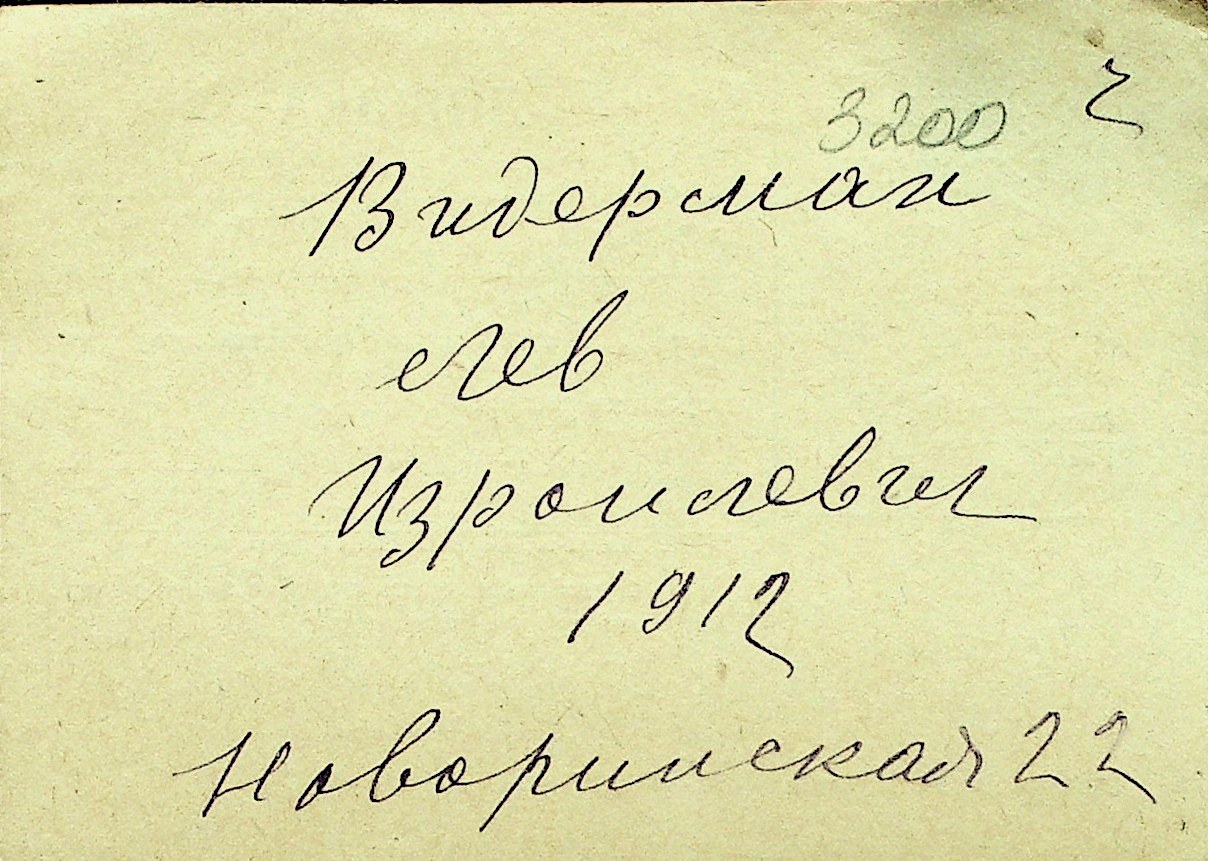 3200 2
Видерман
Лев
Израилевич
1912
Новоринская 22